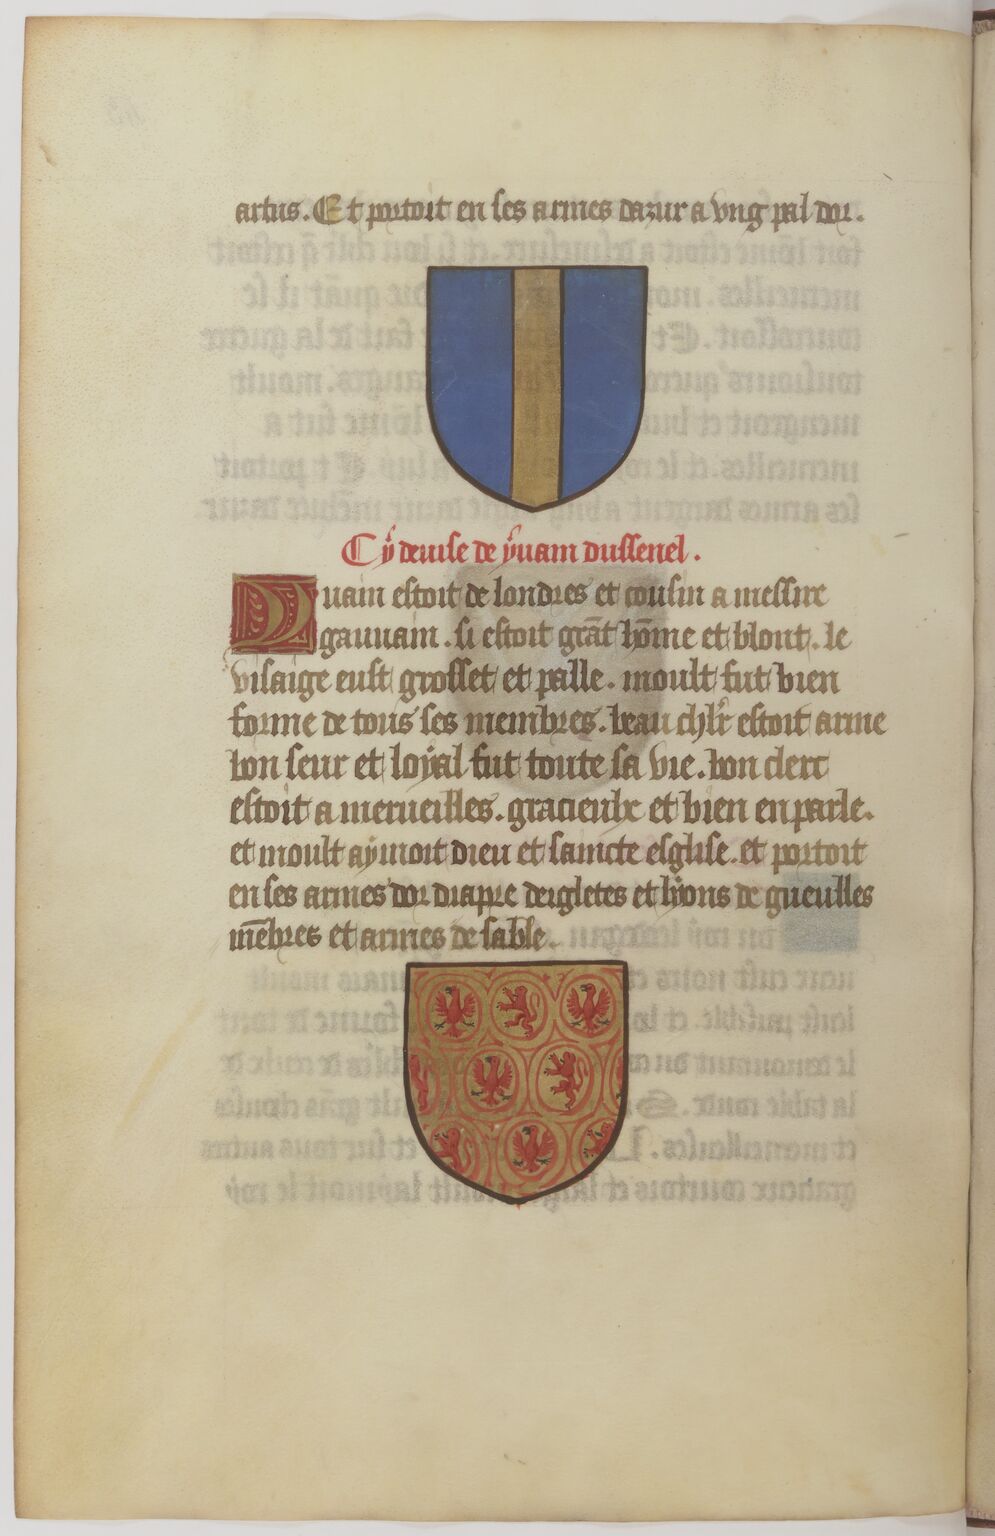 artus. Et portoit en ses armes dazur a vng pal dor.
Cy deuise de yuain dussenel.
Yuain estoit de londres et cousin a messire
gauuain. si estoit grãt hõme et blont. le
visaige eust grosset et palle. moult fut bien
forme de tous ses membres. beau chlr estoit arme
bon seur et loyal fut toute sa vie. bon clerc
estoit a merueilles. gracieulx et bien enparle.
et moult aymoit dieu et saincte esglise. et portoit
en ses armes dor diapre deigletes et lyons de gueulles
mẽbres et armes de sable.